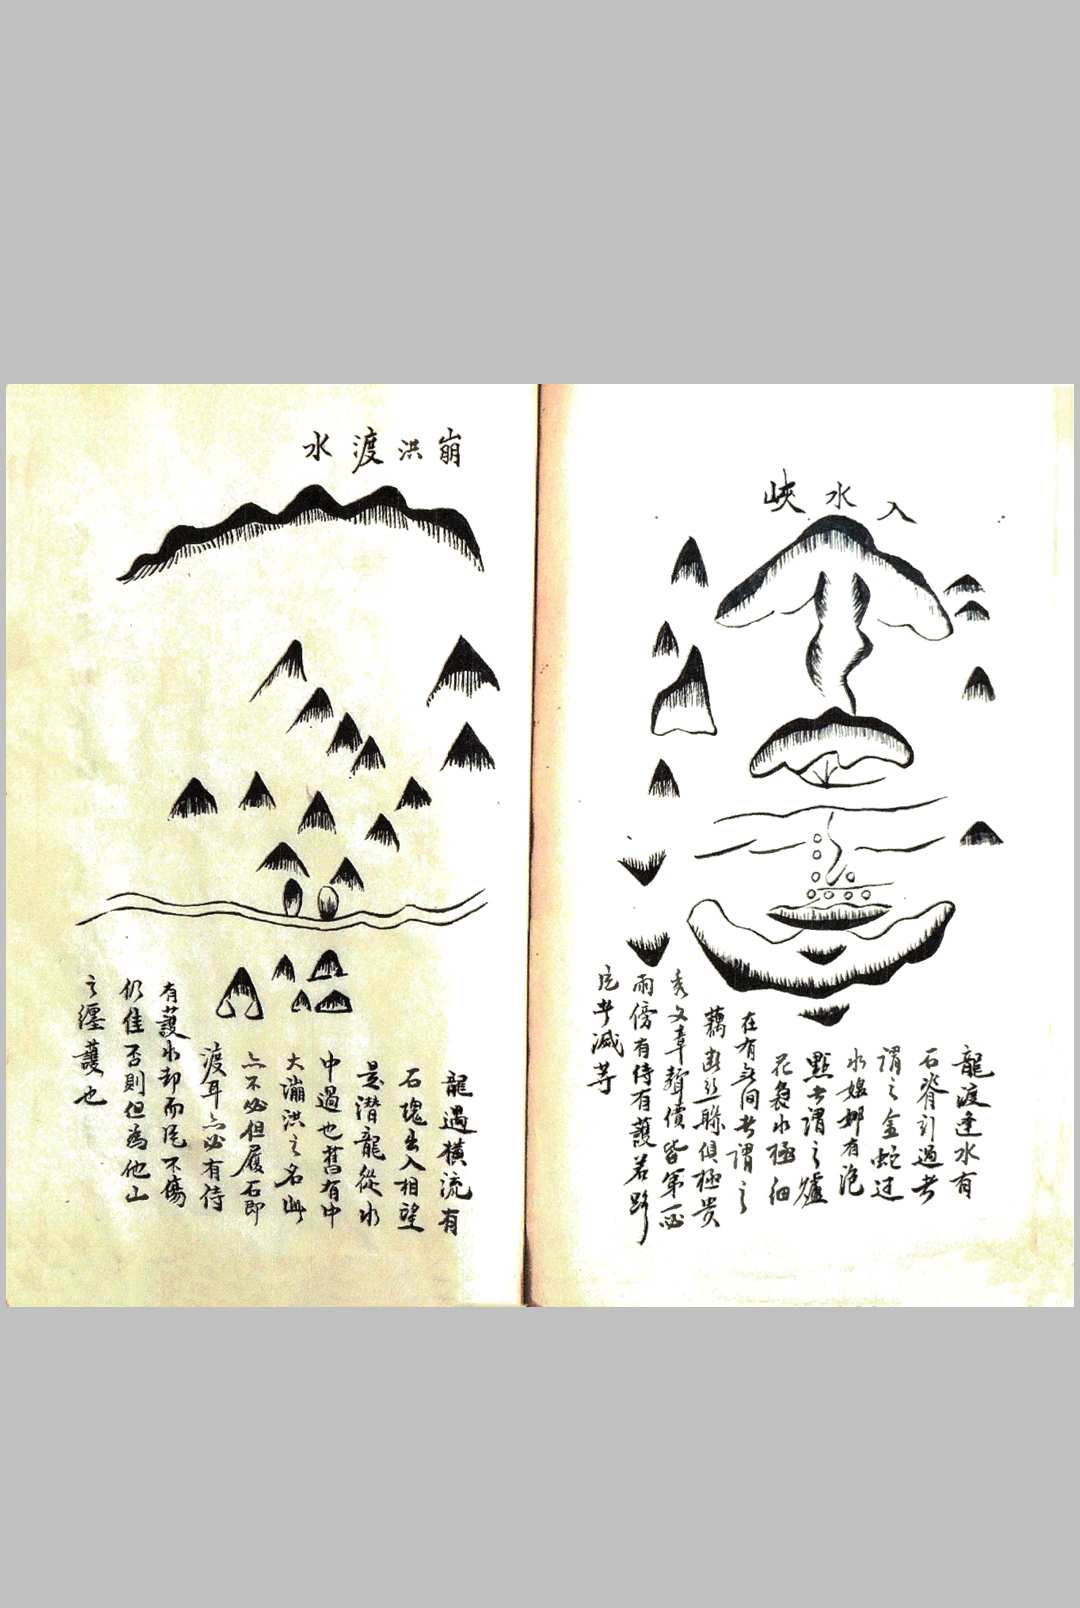 入水峽
龍渡逢水有
石脊引過者
謂之金蛇过
水娘娜有泡
點者謂之爐
花裊水極細
在有无间者謂之
藕断丝聨俱極贵
秀文章聲價皆第一必
雨傍有侍有護若
者减等
崩洪渡水
龍過橫流有
石塊出入相望
是潜龍從水
中過也舊有中
大漰洪之名此
亦不必但履石即
渡耳亦必有侍
有護水却而不傷
仍佳否則但為他山
之纏護也